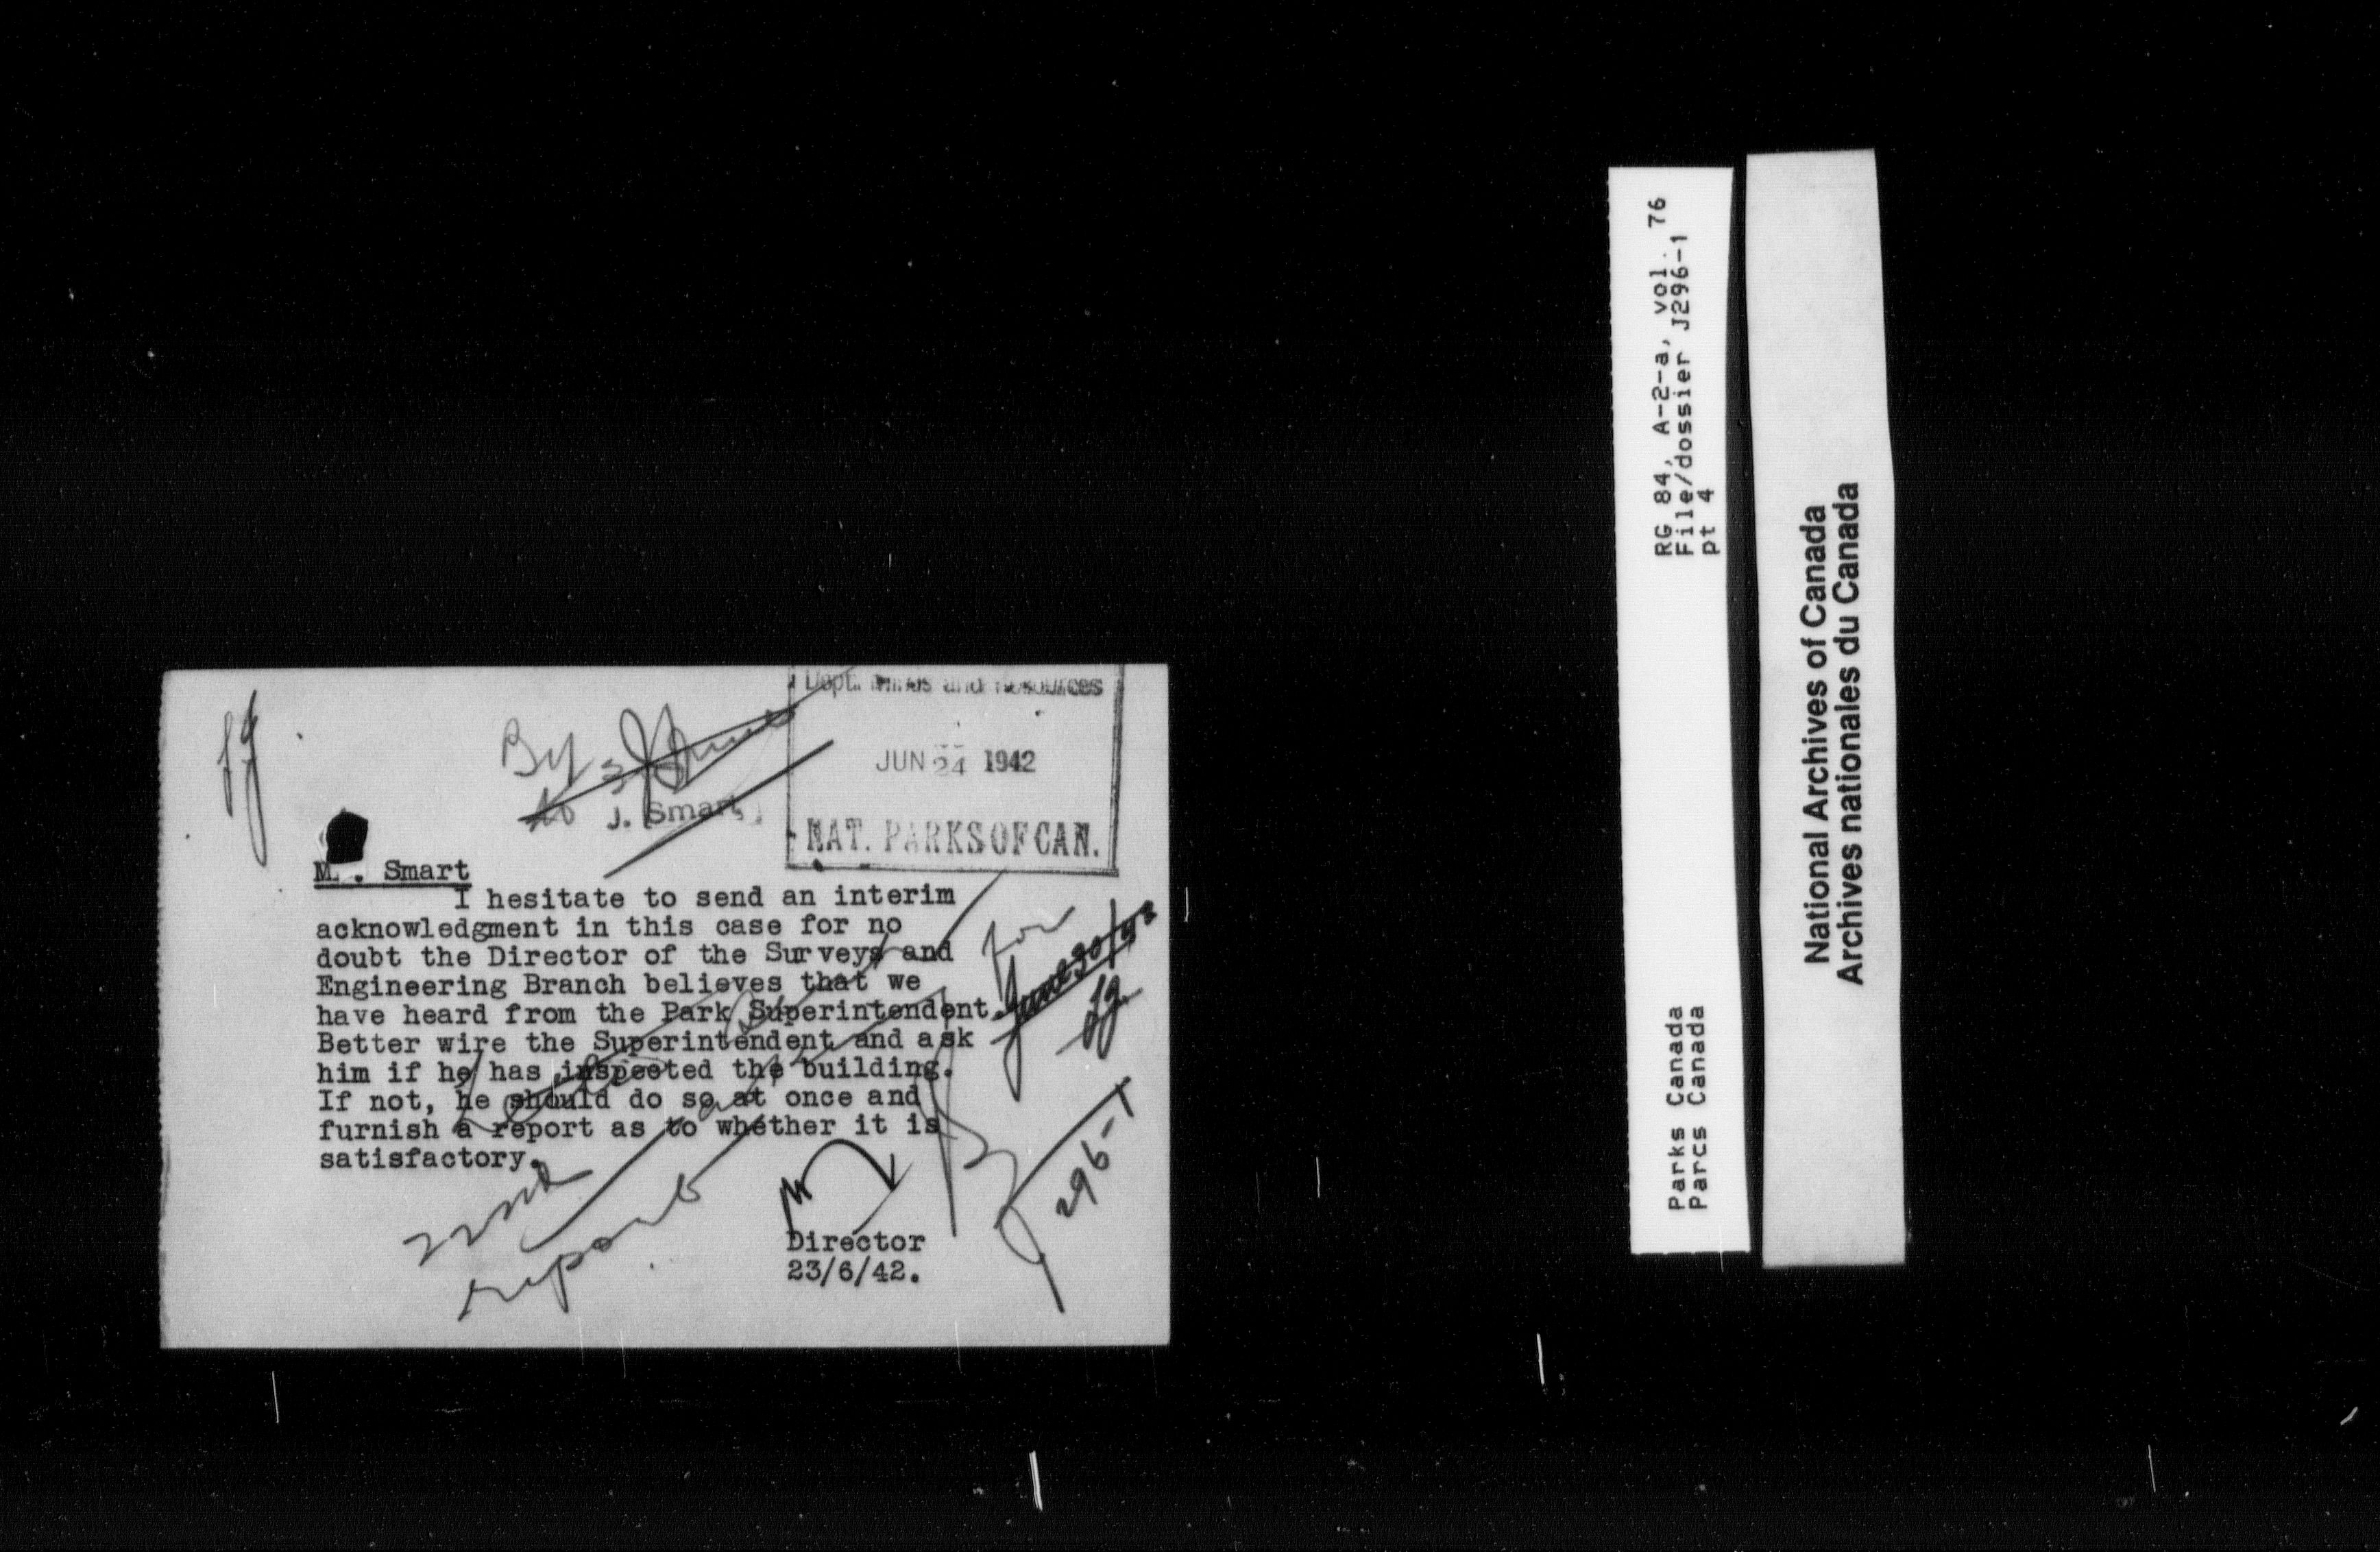 By
J. Smart
Dept. Mines and Resources
JUN 24 1942
NAT. PARKS OF CAN.
M . Smart
I hesitate to send an interim
acknowledgment in this case for no
doubt the Director of the Surveys and
Engineering Branch believes that we
have heard from the Park Superintendent.
Better wire the Superintendent and ask
him if he has inspected the building.
If not, he should do so at once and
furnish a report as to whether it is
satisfactory.
for
June 30/42
296-1
report
Director
23/6/42.
RG 84, A-2-a, vol. 76
File/dossier J296-1
pt 4
Parks Canada
Parcs Canada
National Archives of Canada
Archives nationales du Canada